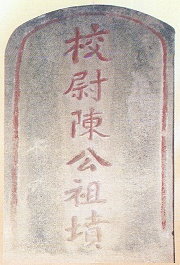 校尉陳公祖墳